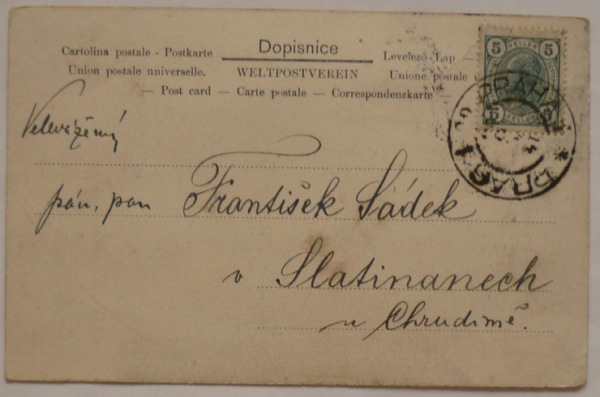 Dopisnice
Cartolina postale - Postkarte
Levelező-Lap -
Union postale universelle.
WELTPOSTVEREIN
Unione postale
— Post card — Carte postale — Correspondenzkarte —
5 5
HELLER
PRAHA
PRAG
Velevážený
pán, pan František Sádek
v Slatinanech
u Chrudimě.